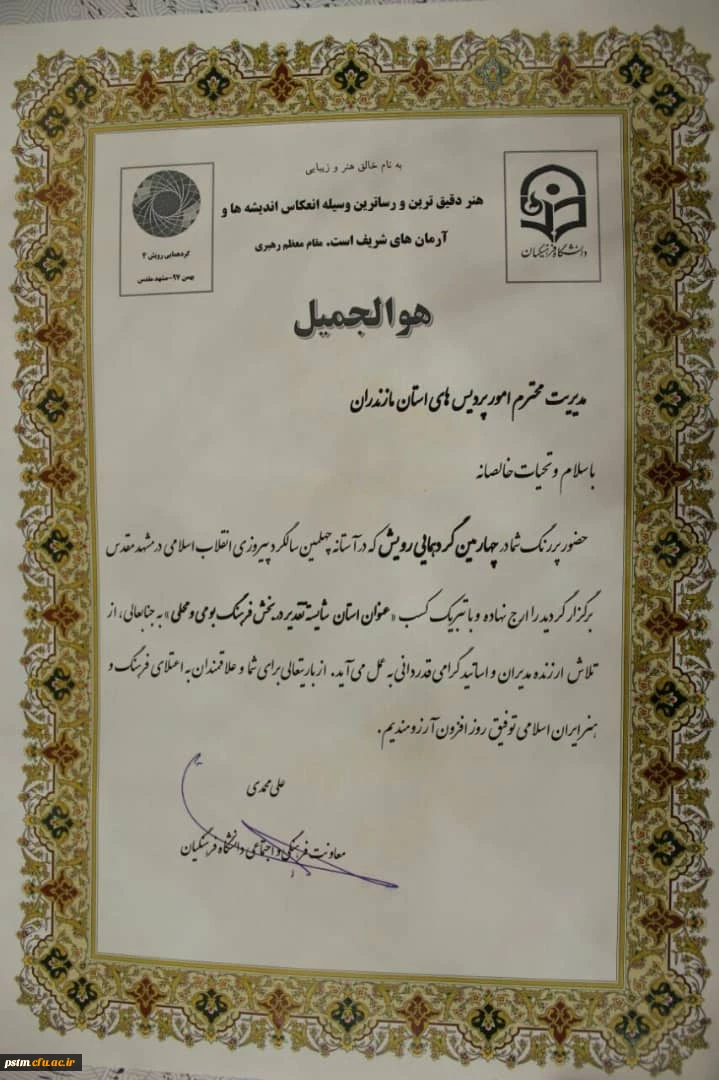 به نام خالق هنر و زیبایی
هنر دقیق ترین و رساترین وسیله انعکاس اندیشه ها و
آرمان های شریف است. مقام معظم رهبری
دانشگاه فرهنگیان
گردهمایی رویش ۴
بهمن ۹۷-مشهد مقدس
هوالجمیل
مدیریت محترم امور پردیس های استان مازندران
با سلام و تحیات خالصانه
حضور پررنگ شما در چهارمین گردهمایی رویش که در آستانه چهلمین سالگرد پیروزی انقلاب اسلامی در مشهد مقدس
برگزار گردید را ارج نهاده و با تبریک کسب «عنوان استان شایسته تقدیر در بخش فرهنگ بومی و محلی» به جنابعالی، از
تلاش ارزنده مدیران و اساتید گرامی قدردانی به عمل می آید. از باریتعالی برای شما و علاقمندان به اعتلای فرهنگ و
هنر ایران اسلامی توفیق روز افزون آرزومندیم.
علی محمدی
معاونت فرهنگی و اجتماعی دانشگاه فرهنگیان
pstm.cfu.ac.ir